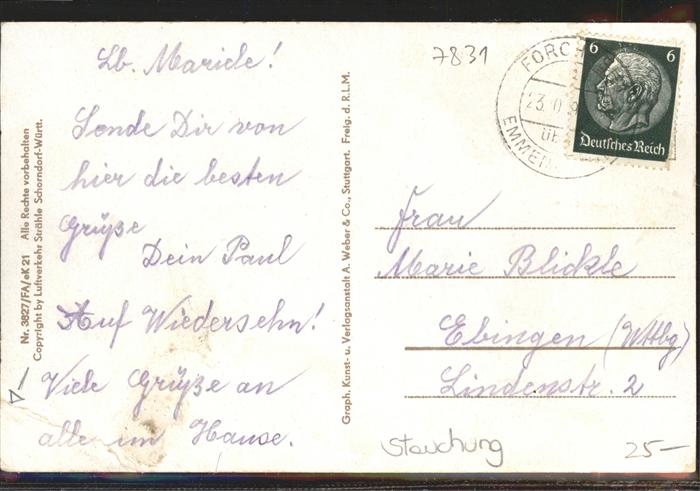 Lb. Mariele!
Sende Dir von
hier die besten
Grüße
Dein Paul
Auf Wiedersehn!
Viele Grüße an
alle im Hause.
Nr. 3827/FA/eK 21 Alle Rechte vorbehalten
Copyright by Luftverkehr Strähle Schorndorf-Württ.
Graph. Kunst- u. Verlagsanstalt A. Weber & Co., Stuttgart. Freig. d. R.L.M.
7831
FORCH
23.
ÜB
EMMEN
6 6
Deutsches Reich
Frau
Marie Blickle
Ebingen (Wttbg)
Lindenstr. 2
Stauchung
25.—